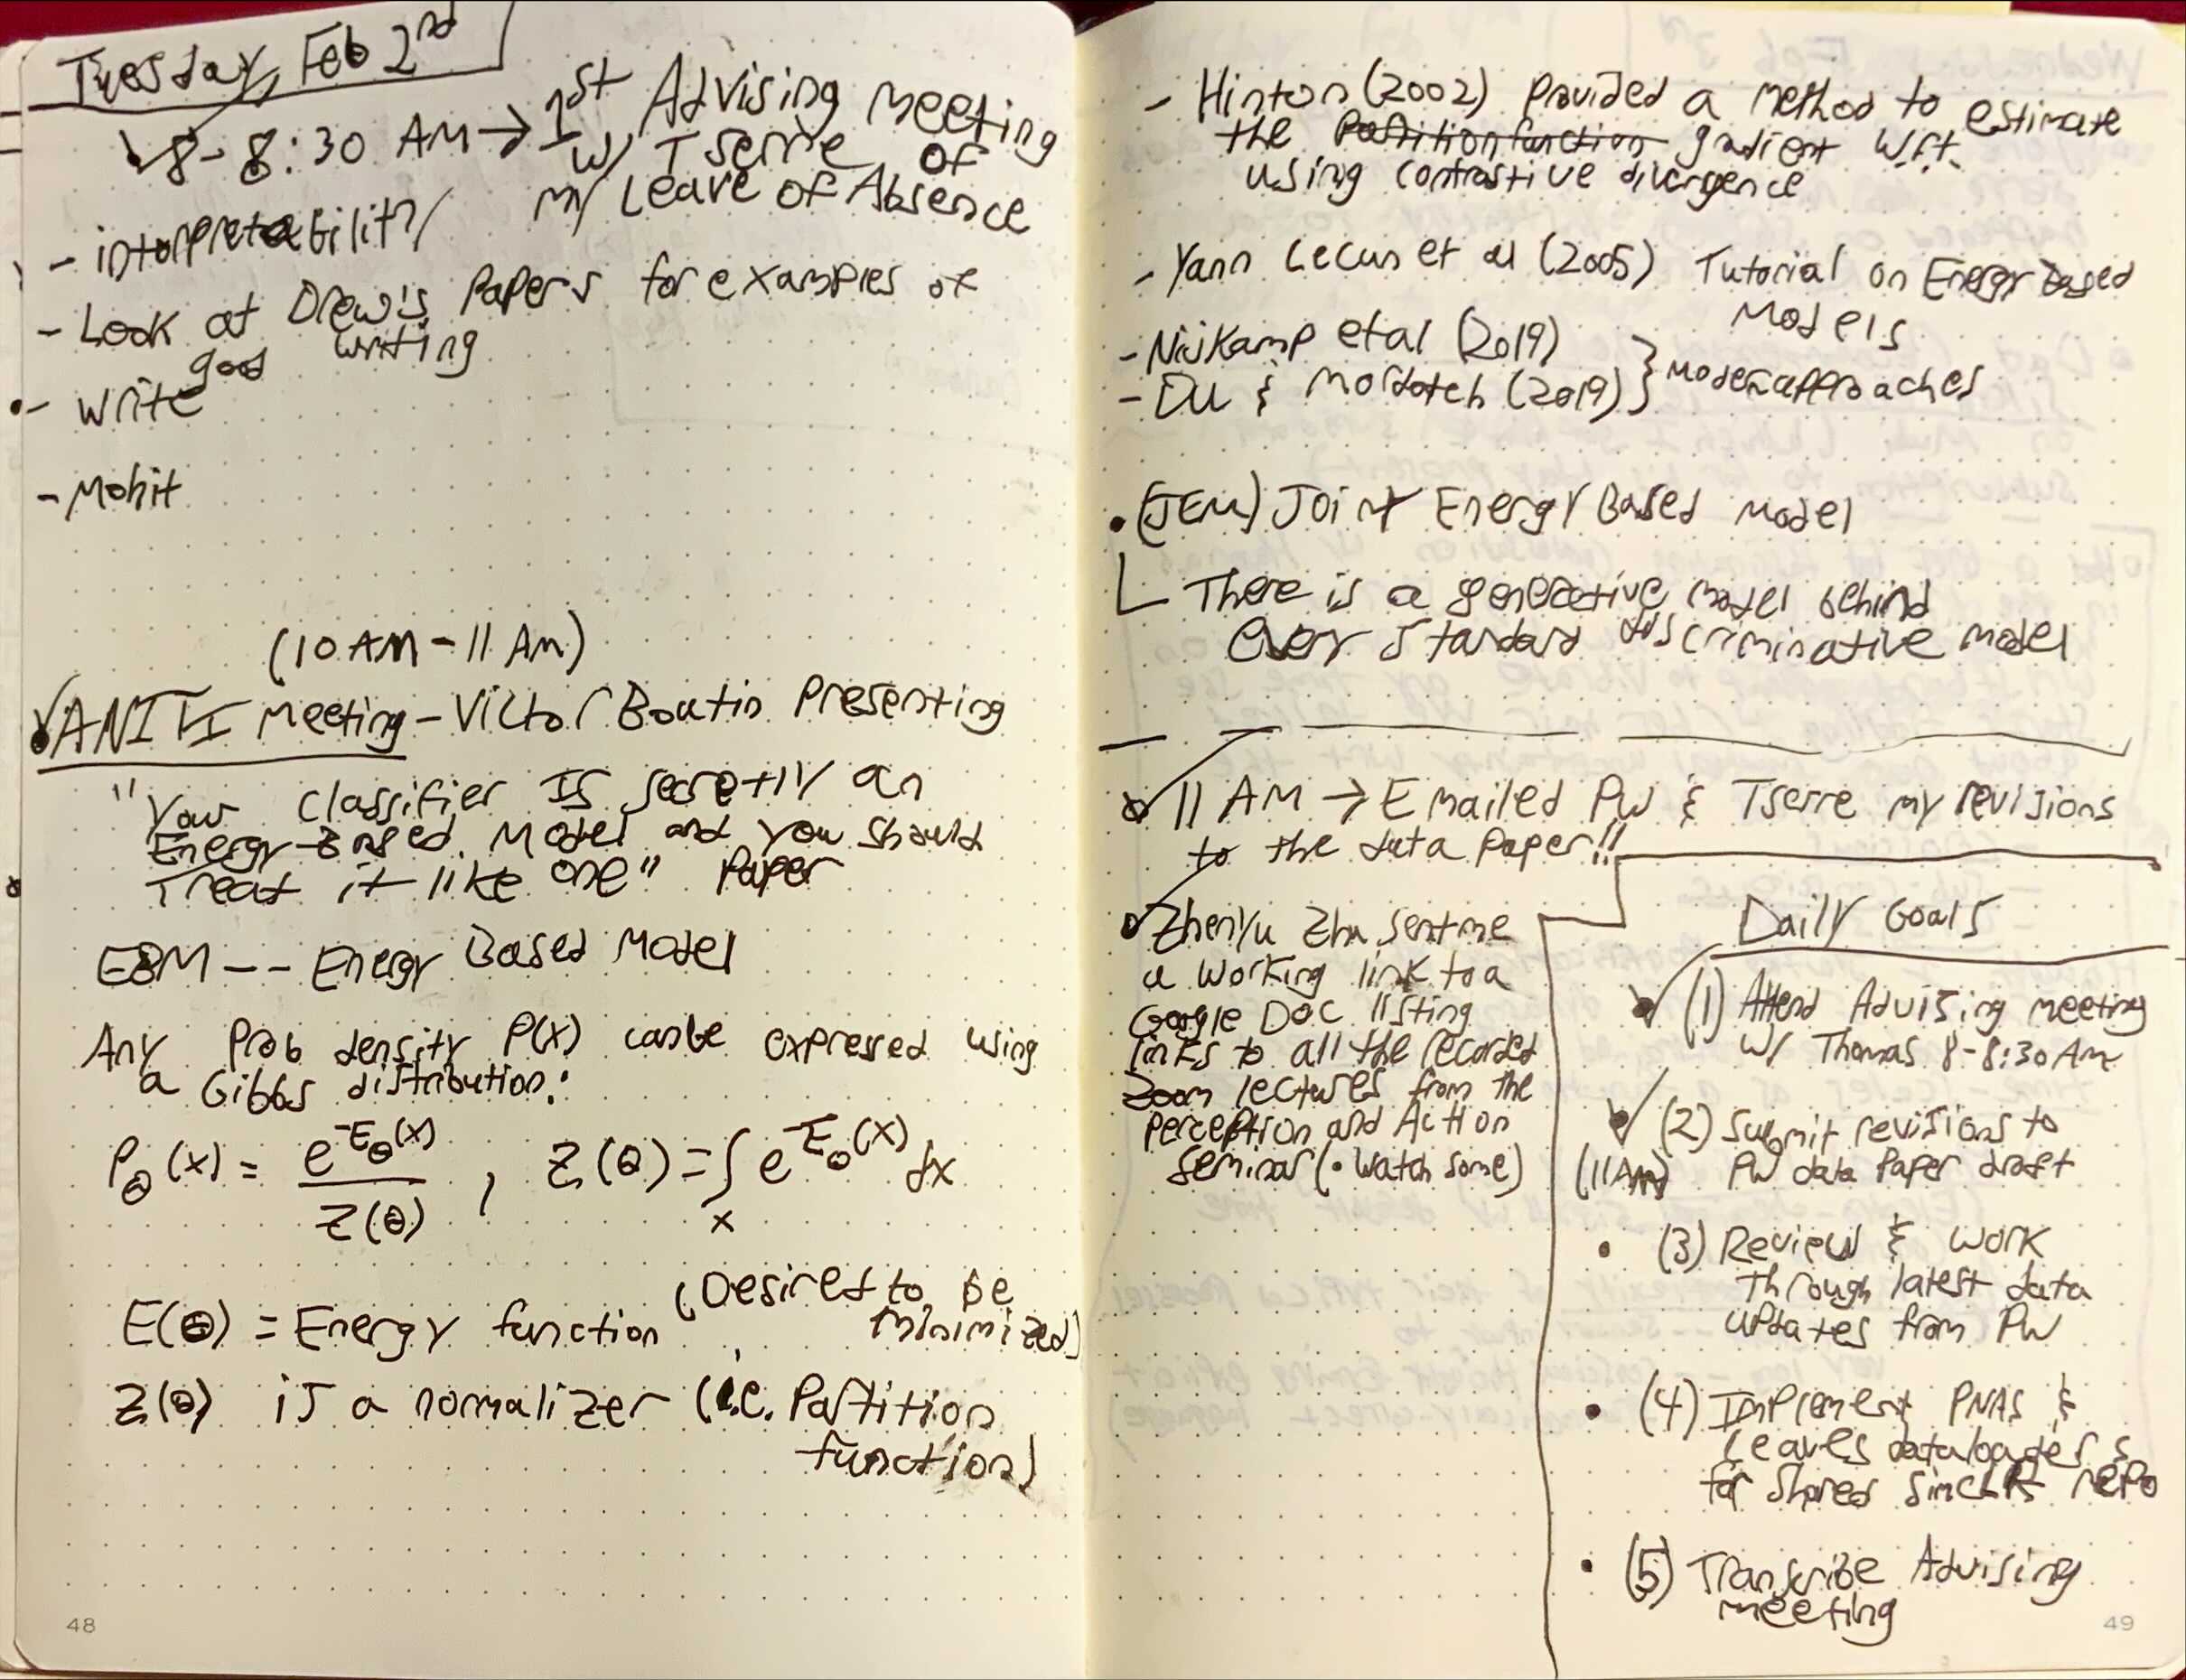 Tuesday, Feb 2nd
8-8:30 AM → 1st Advising meeting
w/ Tserre of
my Leave of Absence
- interpretability
- Look at Drew's Papers for examples of
good writing
- write
- Mohit
(10 AM - 11 AM)
ANITI Meeting - Victor Boutin Presenting
"Your Classifier Is secretly an
Energy-Based Model and you should
Treat it like one" Paper
EBM -- Energy Based Model
Any Prob density P(x) can be expressed using
a Gibbs distribution:
Pθ(x) = e^-Eθ(x) / Z(θ) , Z(θ) = ∫x e^-Eθ(x) dx
E(θ) = Energy function (Desired to be
minimized)
Z(θ) is a normalizer (i.e. Partition
function)
48
- Hinton (2002) Provided a method to estimate
the Partition function gradient w.r.t.
using contrastive divergence
- Yann Lecun et al (2005) Tutorial on Energy Based
Models
- Nijkamp et al (2019)
- DU & Mordatch (2019) } Modern approaches
• (JEM) Joint Energy Based Model
There is a generative model behind
every standard discriminative model
11 AM → Emailed PW & Tserre my revisions
to the data Paper!!
Zhenyu Zhu sent me
a working link to a
Google Doc listing
links to all the recorded
Zoom lectures from the
Perception and Action
Seminar (• Watch some)
Daily Goals
(1) Attend Advising meeting
w/ Thomas 8-8:30 AM
(2) Submit revisions to
(11AM) PW data Paper draft
• (3) Review & work
through latest data
updates from PW
• (4) Implement PNAS &
Leaves dataloaders
for shared SimCLR repo
• (5) Transcribe Advising
meeting
49